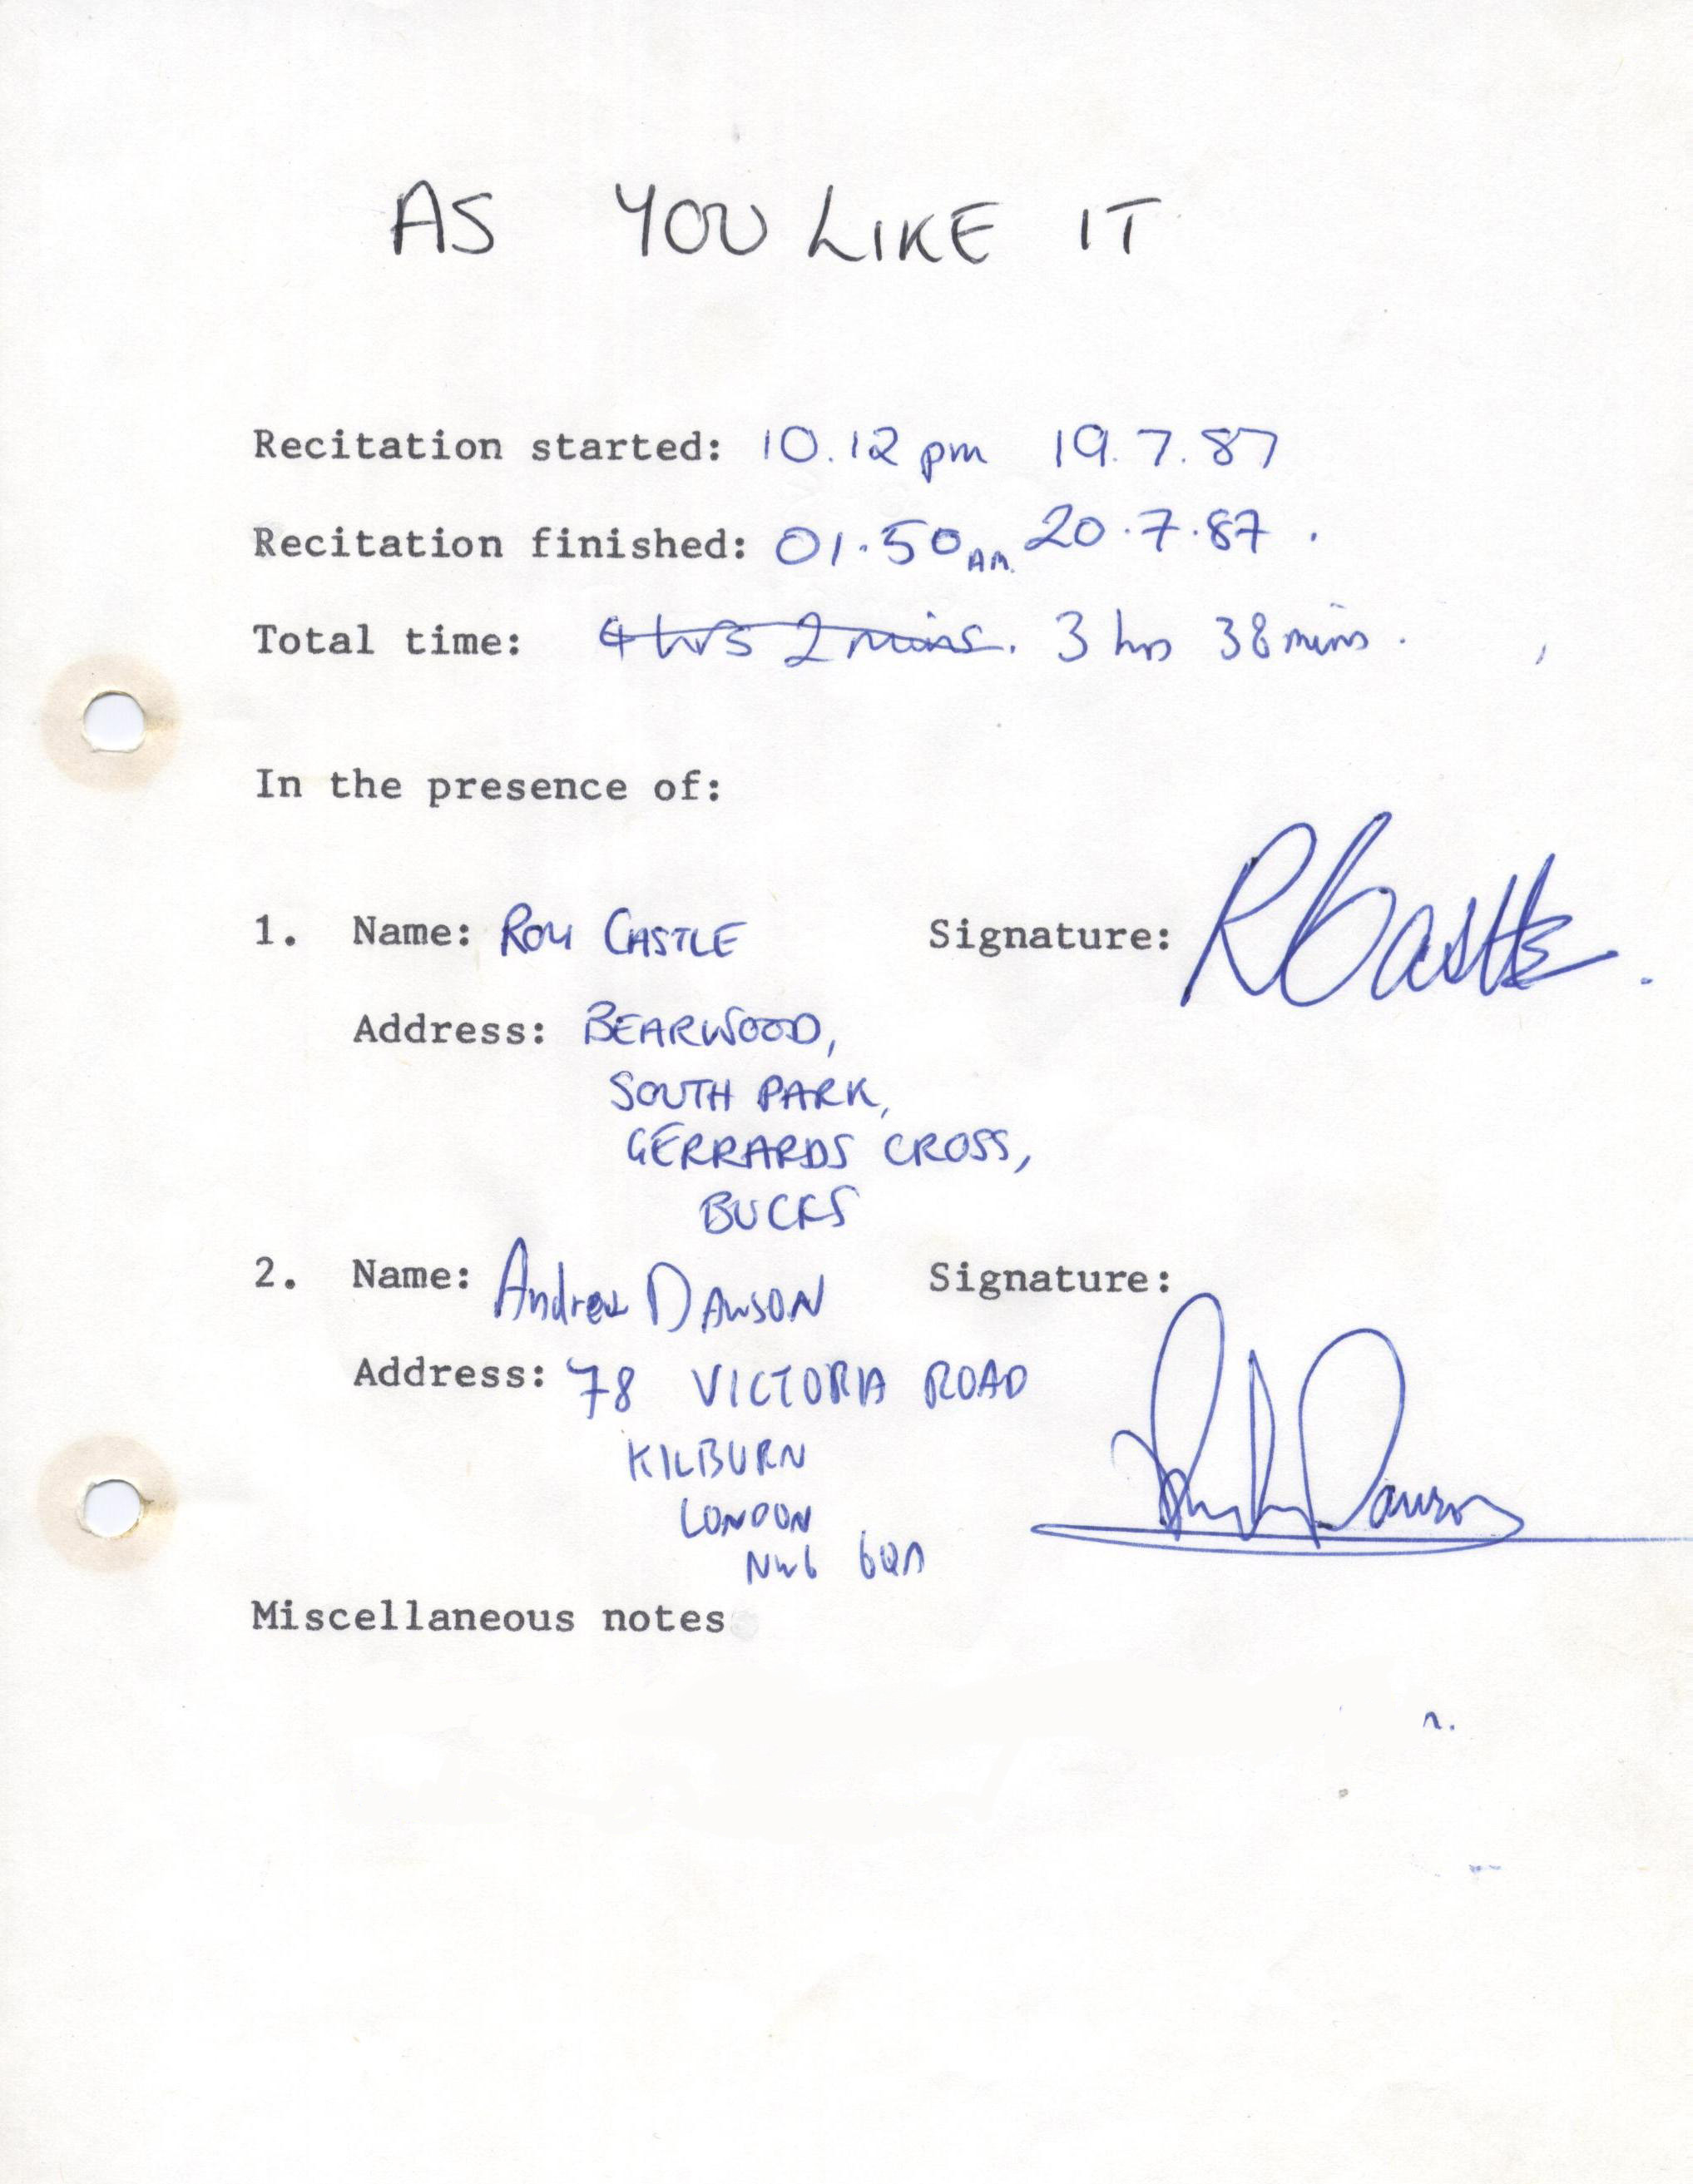 AS YOU LIKE IT
Recitation started: 10.12 pm 19.7.87
Recitation finished: 01.50 AM. 20.7.87.
Total time: 4 hrs 2 mins. 3 hrs 38 mins.
In the presence of:
1. Name: ROY CASTLE Signature: R Castle.
Address: BEARWOOD,
SOUTH PARK,
GERRARDS CROSS,
BUCKS
2. Name: Andrew DAWSON Signature:
Address: 78 VICTORIA ROAD
KILBURN
LONDON
NW6 6QA
Miscellaneous notes